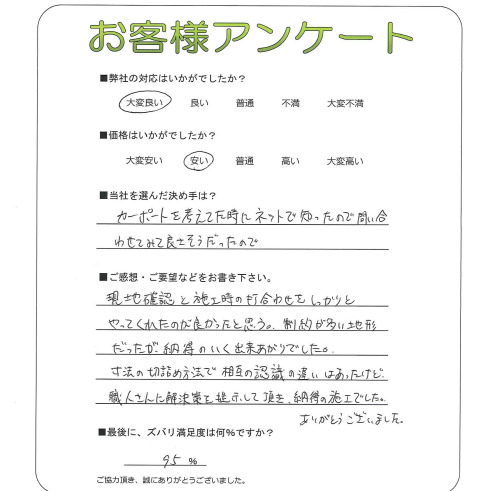 お客様アンケート
■弊社の対応はいかがでしたか？
大変良い 良い 普通 不満 大変不満
■価格はいかがでしたか？
大変安い 安い 普通 高い 大変高い
■当社を選んだ決め手は？
カーポートを考えてた時にネットで知ったので問い合
わせてみて良さそうだったので
■ご感想・ご要望などをお書き下さい。
現地確認と施工時の打合わせをしっかりと
やってくれたのが良かったと思う。制約が多い地形
だったが、納得のいく出来あがりでした。
寸法の切詰め方法で相互の認識の違いはあったけど、
職人さんに解決策を提示して頂き、納得の施工でした。
ありがとうございました。
■最後に、ズバリ満足度は何％ですか？
95 %
ご協力頂き、誠にありがとうございました。